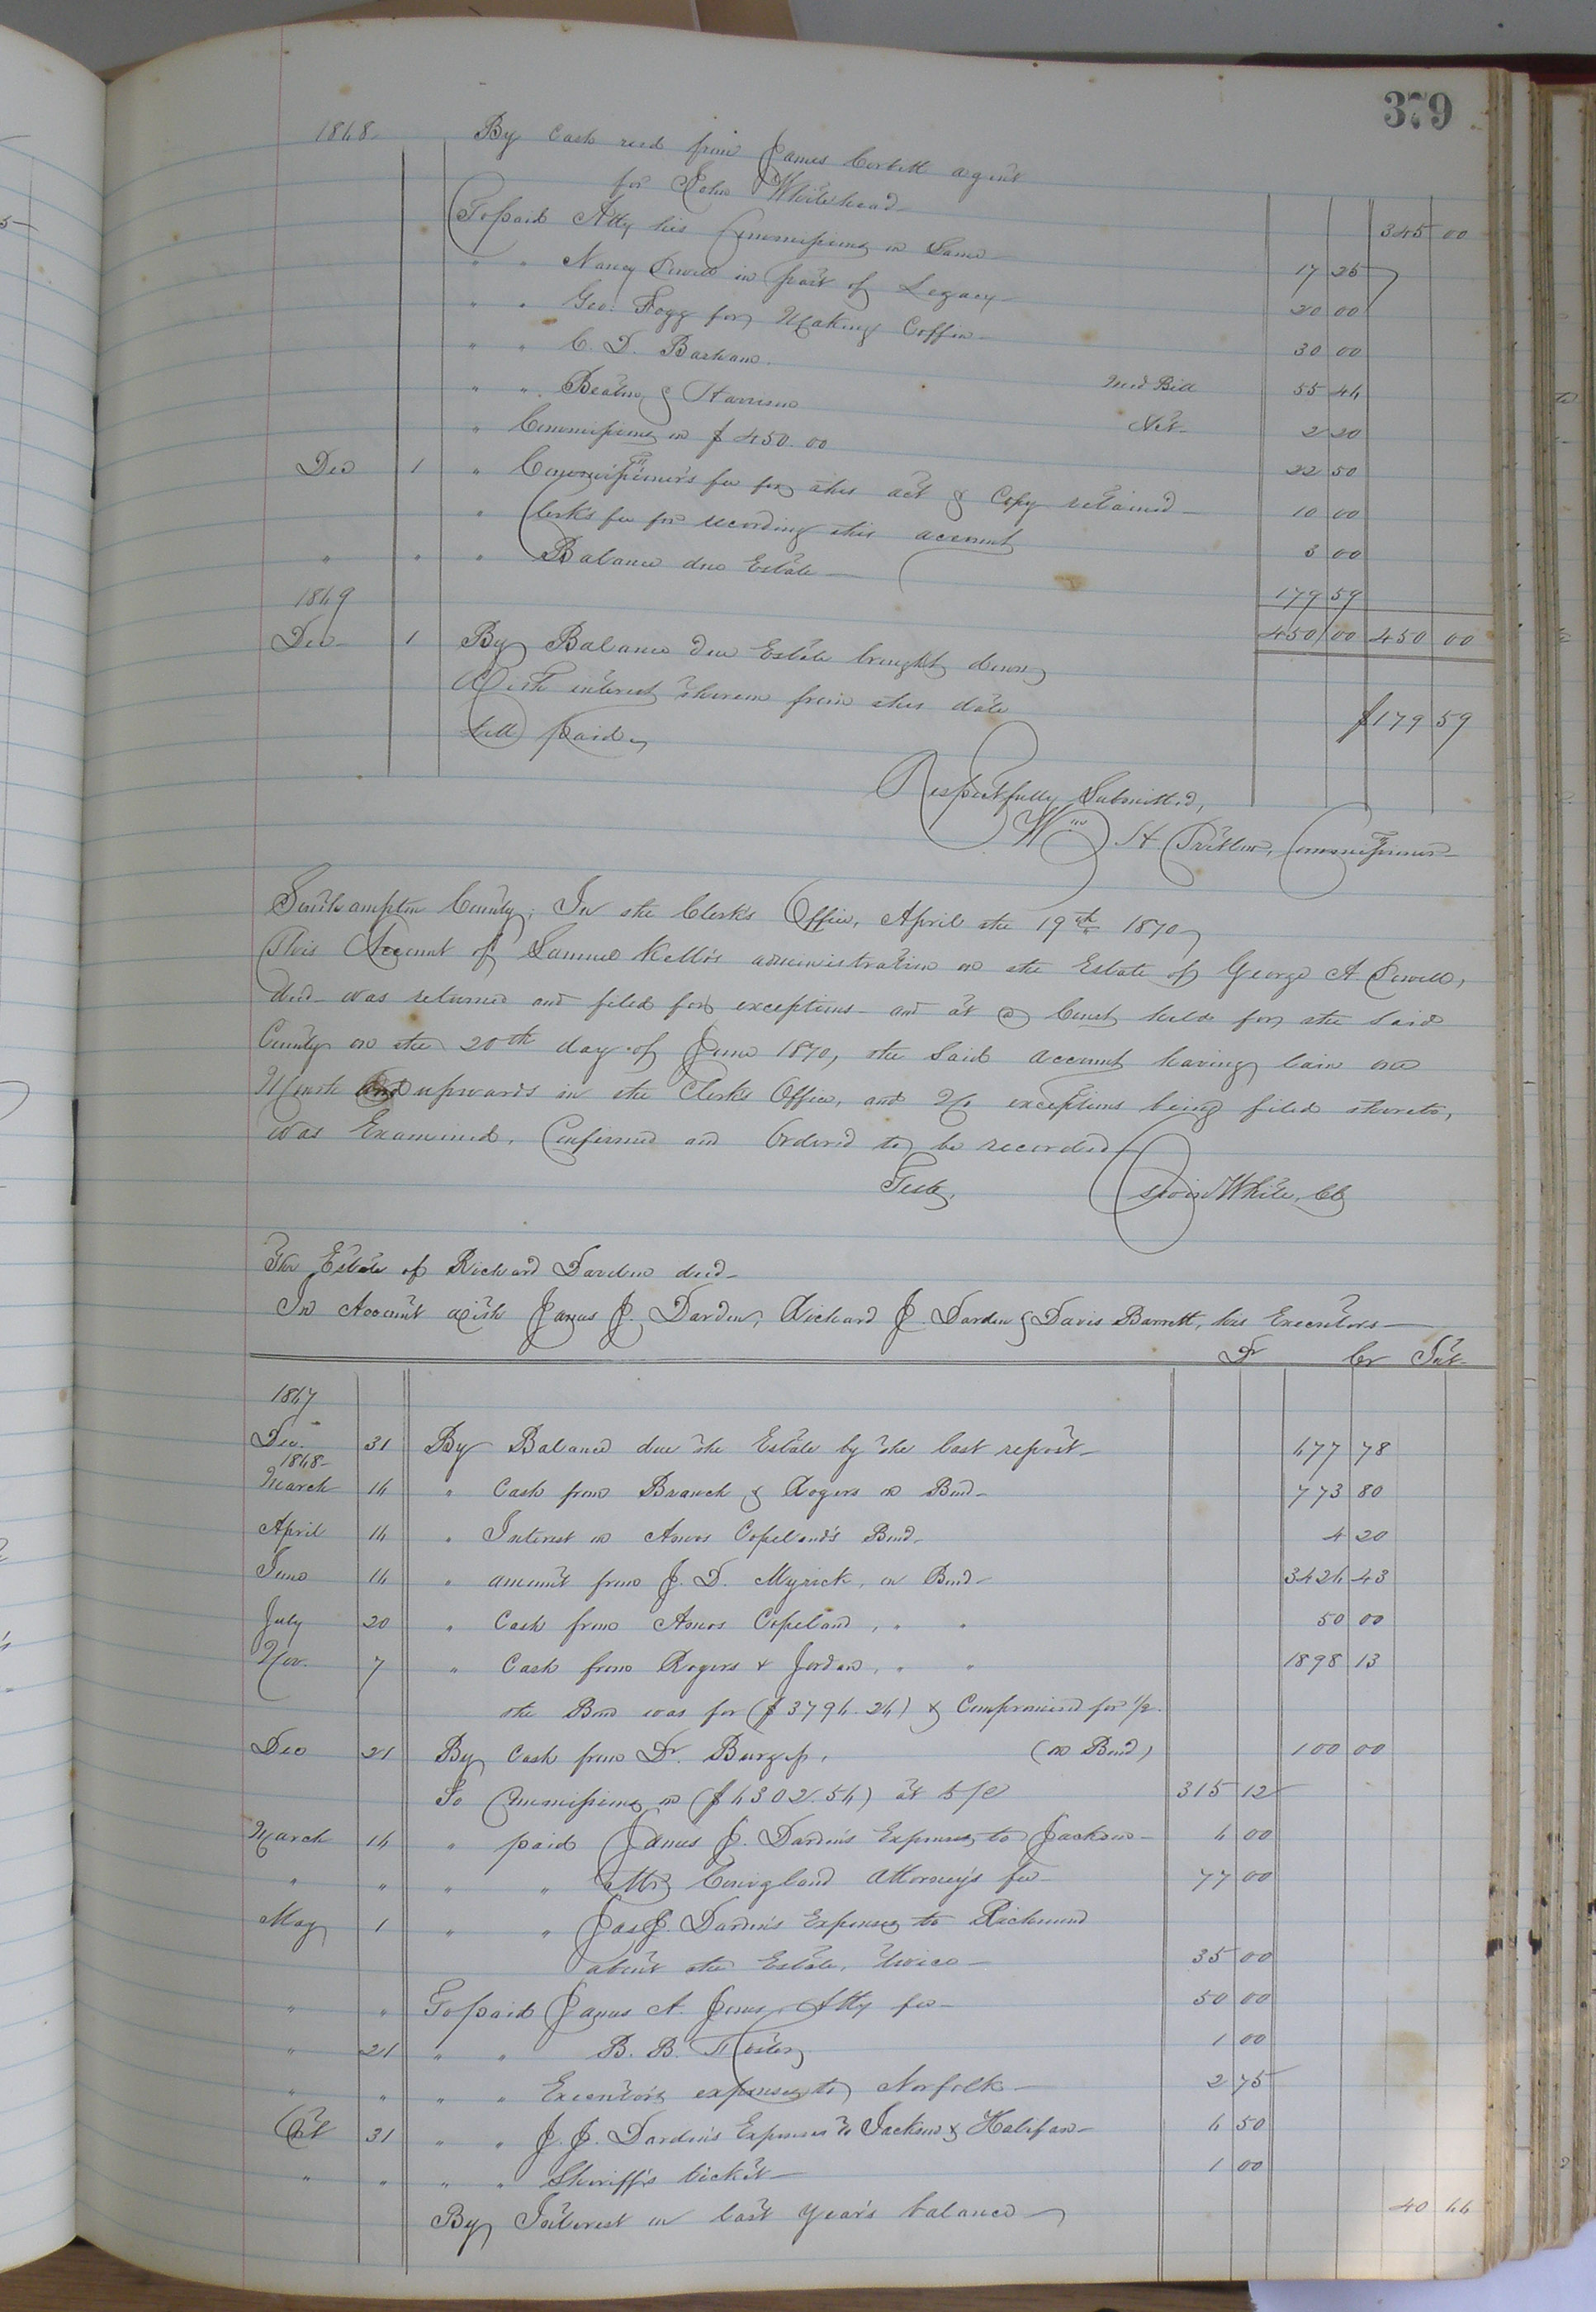 379
1868 By Cash recd from James Corbitt agent
for John Whitehead 345 00
To paid Atty his Commissions on Same 17 25
" " Nancy Powell in part of Legacy 20 00
" " Geo: Fogg for Making Coffin 30 00
" " C. D. Barham Med Bill 55 46
" " Beaton & Harrison Nt. 2 20
" Commissions on $450.00 22 50
Dec 1 " Commissioner's fee for this act & Copy retained 10 00
" Clerks fee for recording this account 3 00
" " " Balance due Estate 179 59
1869 450 00 450 00
Dec 1 By Balance due Estate brought down
With interest thereon from this date
till paid $179 59
Respectfully Submitted,
Wm H. Pretlow, Commissioner
Southampton County; In the Clerk's Office, April the 19th 1870,
This Account of Samuel Kello's administration on the Estate of George A Powell,
decd was returned and filed for exceptions and at a Court held for the said
County on the 20th day of June 1870, the said account having lain one
Month and upwards in the Clerk's Office, and No exceptions being filed thereto,
was Examined, Confirmed and Ordered to be recorded
Teste, White, Clk
The Estate of Richard Darden decd
In Account with James J. Darden, Richard J. Darden & Davis Barrett, his Executors
Dr Cr Int
1867
Dec. 31 By Balance due the Estate by the last report 677 78
1868
March 16 " Cash from Branch & Rogers on Bond 773 80
April 16 " Interest on Amos Copeland's Bond 4 20
June 16 " amount from J. D. Myrick, on Bond 3426 43
July 20 " Cash from Amos Copeland, " " 50 00
Nov. 7 " Cash from Rogers & Jordan, " " 1898 13
the Bond was for ($3796.26) & Compromised for 1/2
Dec 21 By Cash from Dr. Burgess, (on Bond) 100 00
To Commissions on ($6302.56) at 5 p/c 315 12
March 16 " paid James J. Darden's Expenses to Jackson 6 00
" " " " Mr Conigland Attorney's fee 77 00
May 1 " " Jas J. Darden's Expenses to Richmond
about the Estate, twice 35 00
" " To paid James A. Jones, Atty fee 50 00
" 21 " " B. B. 1 00
" " " " Executors expenses to Norfolk 2 75
Oct 31 " " J. J. Darden's Expenses to Jackson & Halifax 6 50
" " " " Sheriff's ticket 1 00
By Interest on last year's balance 40 66